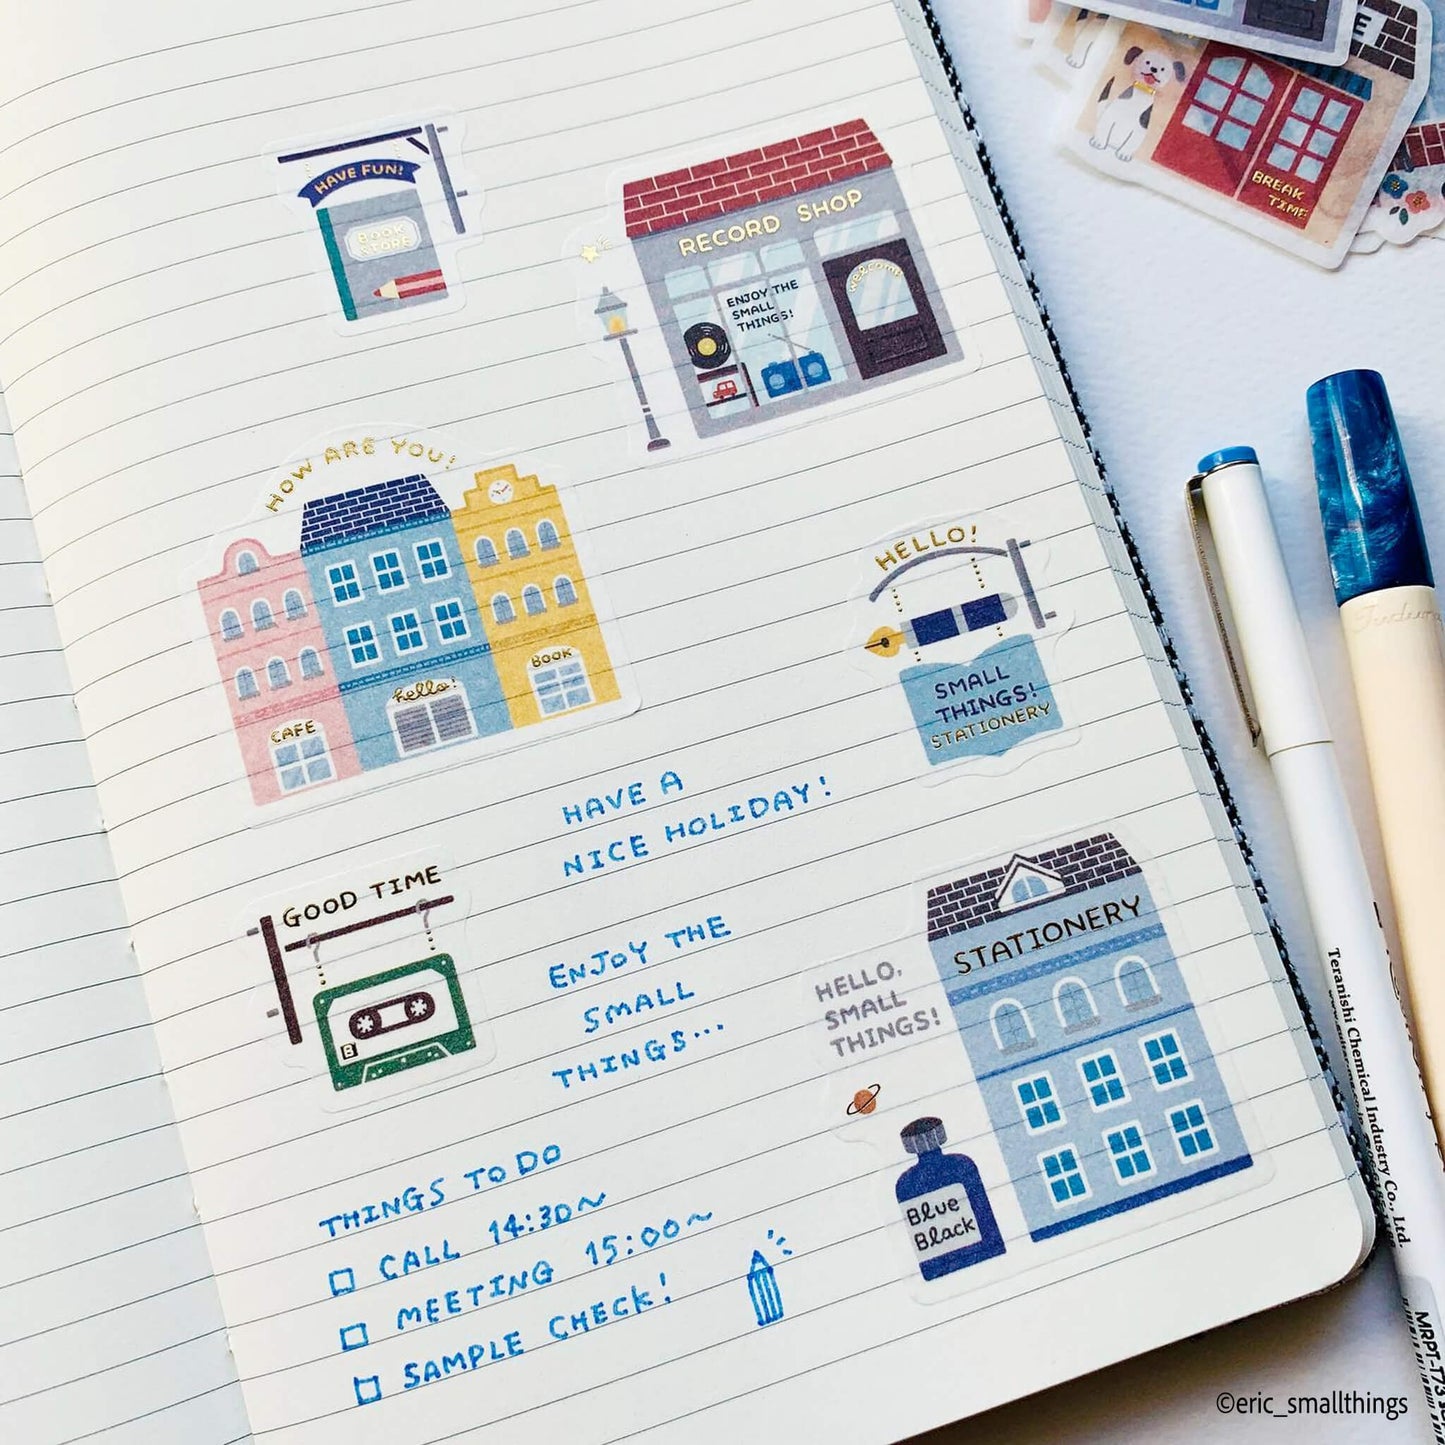 HAVE FUN!
BOOK
STORE
RECORD SHOP
welcome
ENJOY THE
SMALL
THINGS!
BREAK
TIME
HOW ARE YOU!
CAFE
hello!
BOOK
HELLO!
SMALL
THINGS!
STATIONERY
HAVE A
NICE HOLIDAY!
GOOD TIME
B
ENJOY THE
SMALL
THINGS...
STATIONERY
HELLO,
SMALL
THINGS!
Blue
Black
THINGS TO DO
CALL 14:30~
MEETING 15:00~
SAMPLE CHECK!
Teranishi Chemical Industry Co., Ltd.
©eric_smallthings